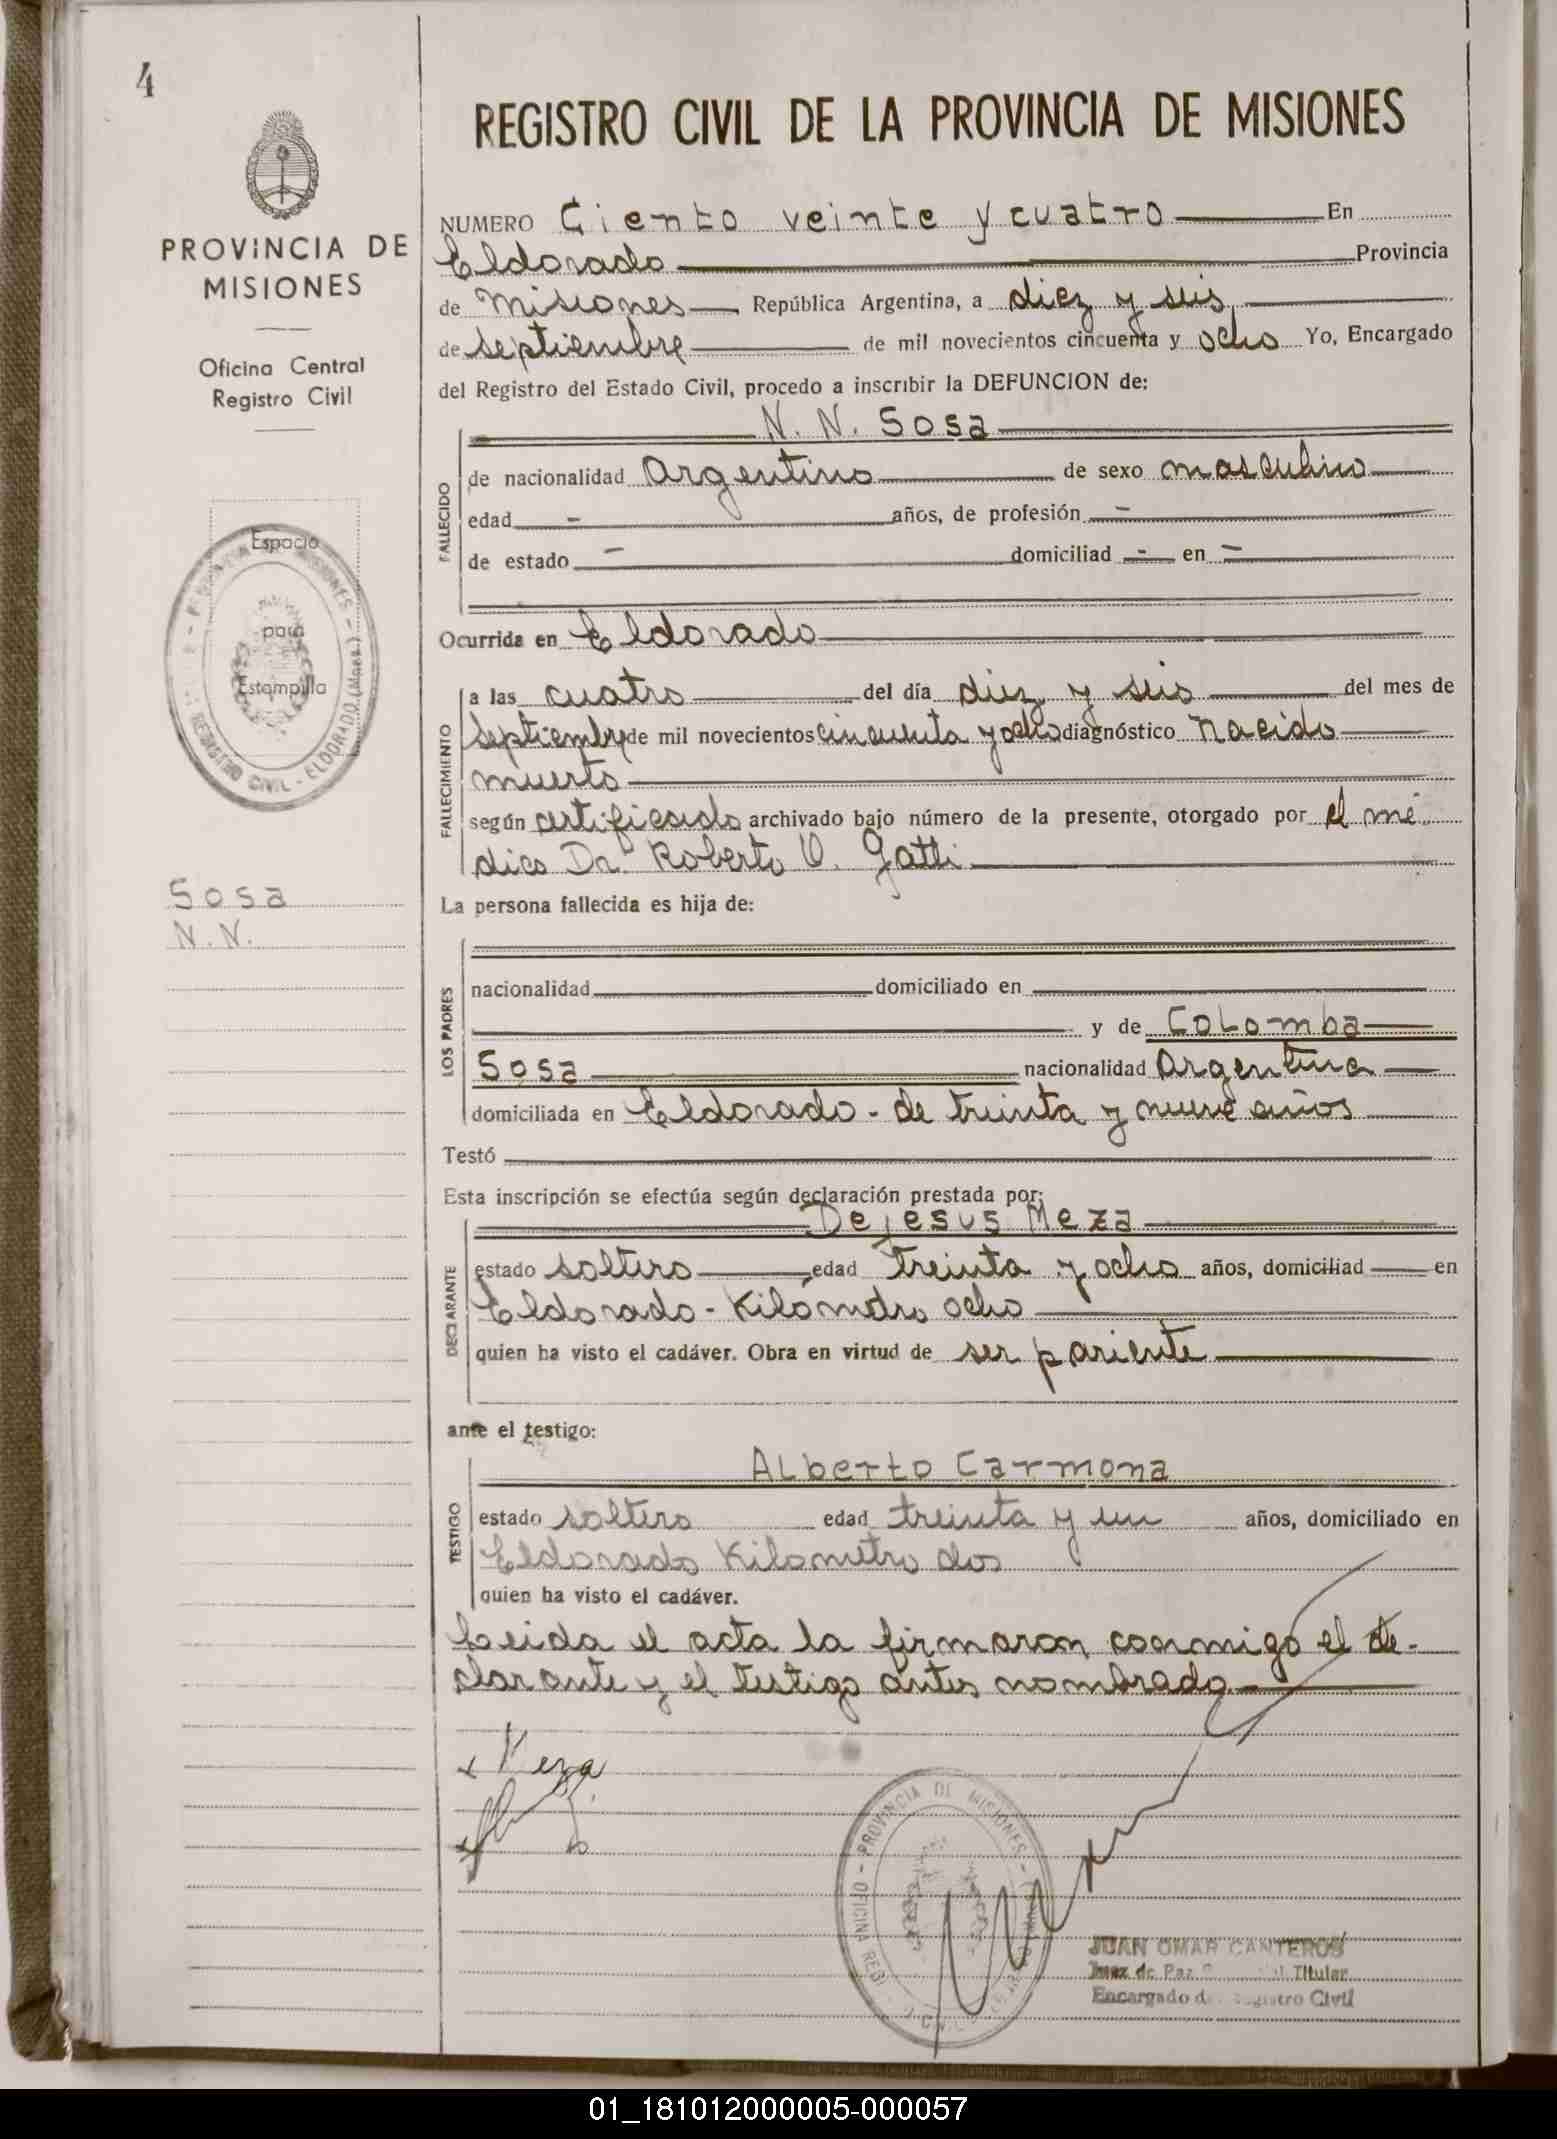 4
REGISTRO CIVIL DE LA PROVINCIA DE MISIONES
PROVINCIA DE
MISIONES
Oficina Central
Registro Civil
Espacio
para
Estampilla
REGISTRO CIVIL - ELDORADO (Mnes.)
Sosa
N. N.
NUMERO Ciento veinte y cuatro En
Eldorado Provincia
de Misiones República Argentina, a diez y seis
de septiembre de mil novecientos cincuenta y ocho Yo, Encargado
del Registro del Estado Civil, procedo a inscribir la DEFUNCION de:
N. N. Sosa
FALLECIDO
de nacionalidad Argentino de sexo masculino
edad - años, de profesión -
de estado - domiciliad - en -
Ocurrida en Eldorado
FALLECIMIENTO
a las cuatro del día diez y seis del mes de
septiembre de mil novecientos cincuenta y ocho diagnóstico nacido
muerto
según certificado archivado bajo número de la presente, otorgado por el mé
dico Dr. Roberto O. Gatti
La persona fallecida es hija de:
LOS PADRES
nacionalidad domiciliado en
y de Colomba
Sosa nacionalidad Argentina
domiciliada en Eldorado - de treinta y nueve años
Testó
Esta inscripción se efectúa según declaración prestada por:
Dejesus Meza
DECLARANTE
estado soltero edad treinta y ocho años, domiciliad en
Eldorado - Kilómetro ocho
quien ha visto el cadáver. Obra en virtud de ser pariente
ante el testigo:
Alberto Carmona
TESTIGO
estado soltero edad treinta y un años, domiciliado en
Eldorado Kilometro dos
quien ha visto el cadáver.
Leida el acta la firmaron conmigo el de-
clarante y el testigo antes nombrado
PROVINCIA DE MISIONES
JUAN OMAR CANTEROS
Juez de Paz Titular
Encargado del Registro Civil
01_181012000005-000057